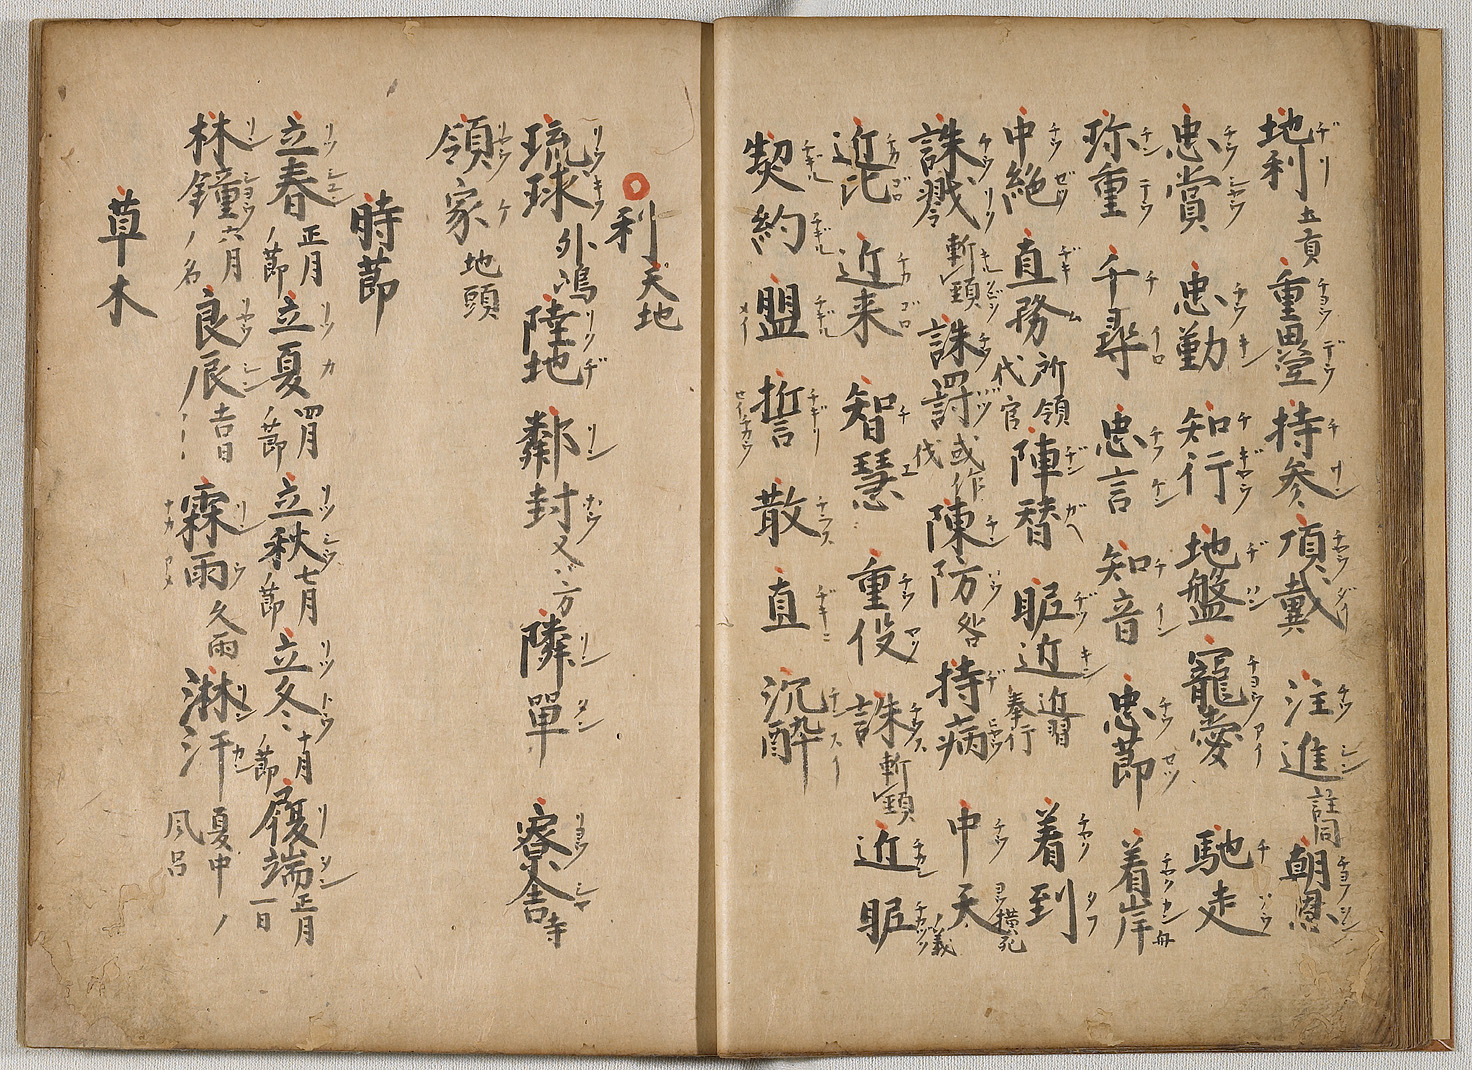 地利土貢 重畳 持参 頂戴 注進註同 朝恩
忠賞 忠勤 知行 地盤 寵愛 馳走
珎重 千尋 忠言 知音 忠節 着岸舟
中絶 直務所領代官 陣替 昵近近習奉行 着到
誅戮斬頚 誅罸或作伐 陳防 持病 中天横死ノ義
近比 近来 智慧 重役 誅斬頚 近昵
契約 盟 誓 散 直 沉酔
利 天地
琉球外嶋 陸地 鄰封又乍方 隣單 寮舎寺
領家地頭
時節
立春正月ノ節 立夏四月ノ節 立秋七月ノ節 立冬十月ノ節 履端正月一日
林鐘六月ノ名 良辰吉日 霖雨久雨 淋汗夏中ノ風呂
草木